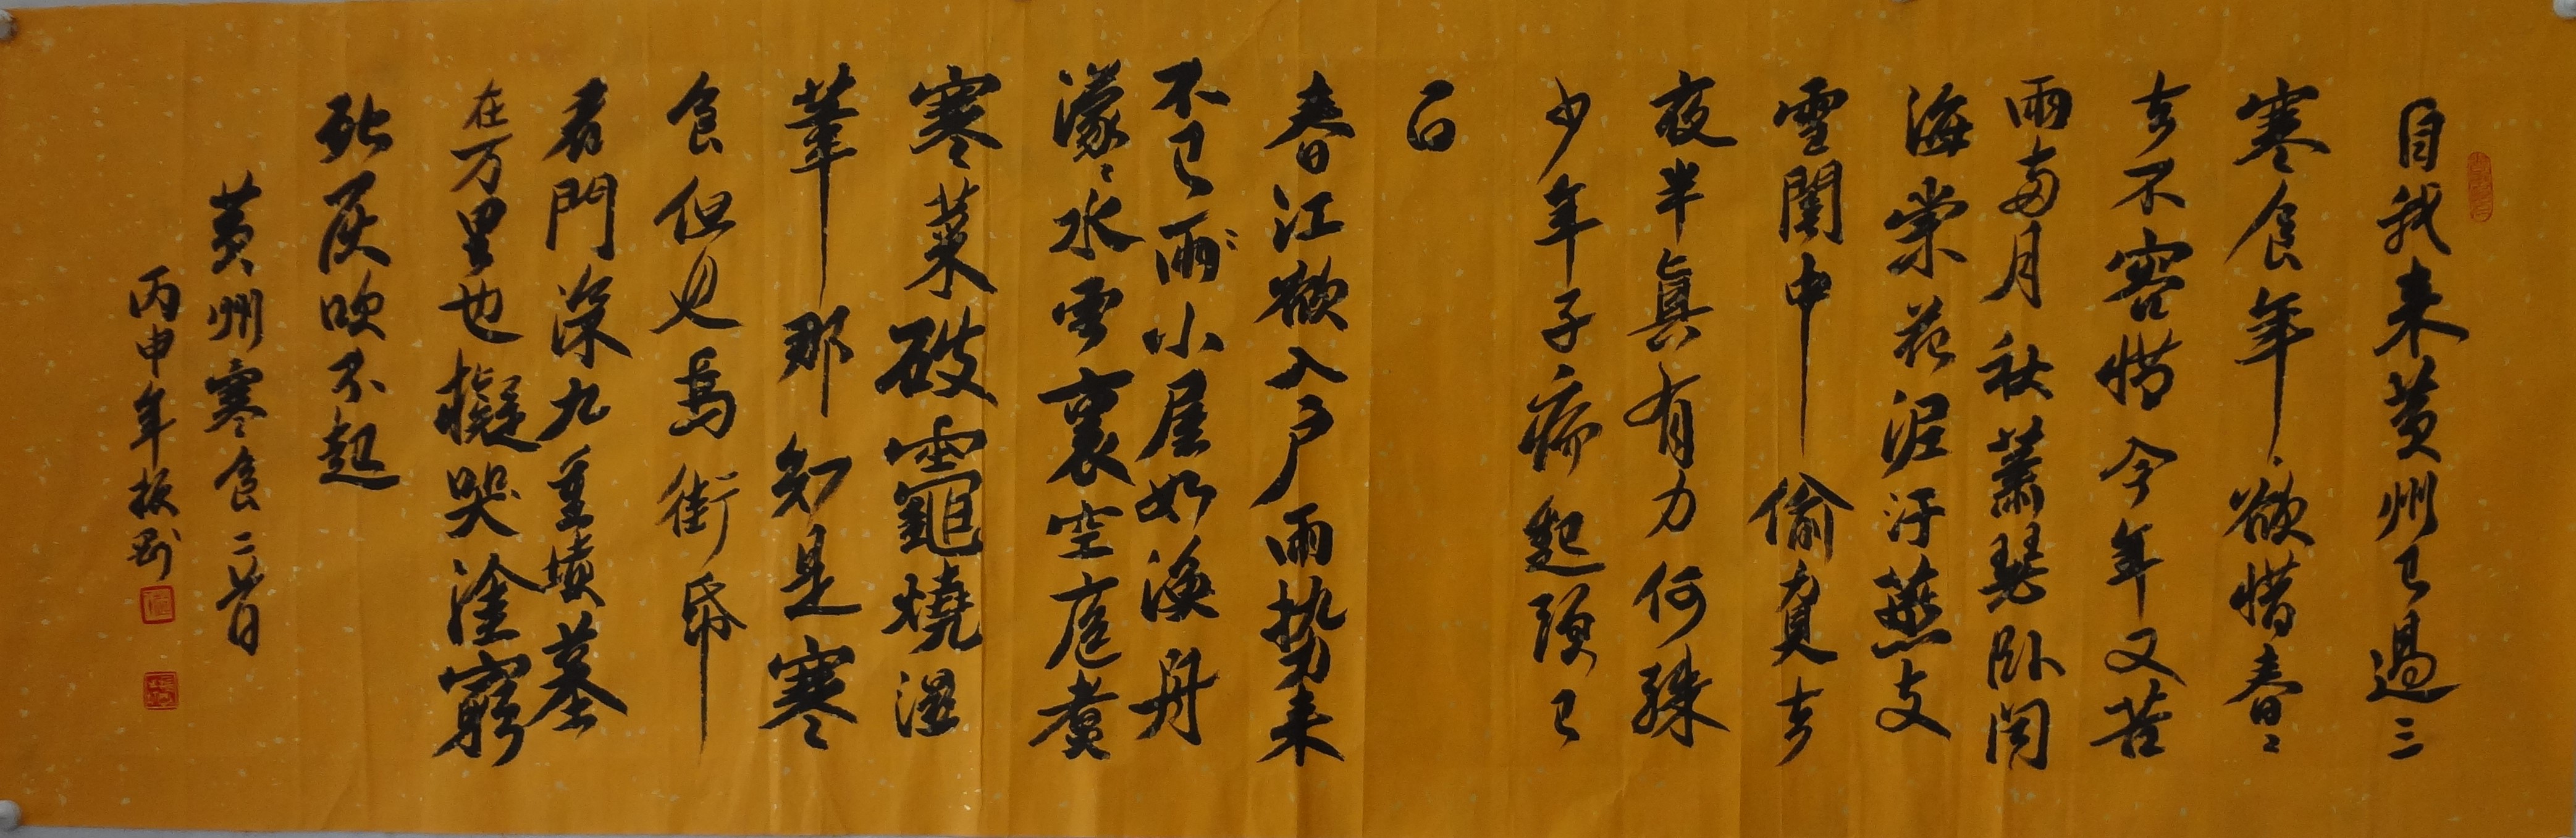 自我来黄州已過三
寒食年年欲惜春春
去不容惜今年又苦
雨两月秋蕭瑟卧闻
海棠花泥汙燕支
雪闇中偷負去
夜半真有力何殊
少年子病起頭已
白
春江欲入户雨势来
不已雨小屋如漁舟
濛濛水雲裏空庖煮
寒菜破竈燒濕
葦那知是寒
食但见烏銜帋
君門深九重墳墓
在万里也擬哭塗窮
死灰吹不起
黄州寒食二首
丙申年振剛